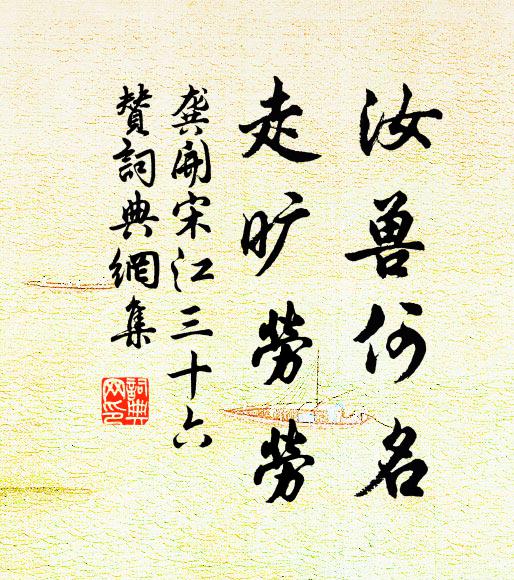 汝兽何名
走旷劳劳
龚开宋江三十六
赞词典網集
詞典网印